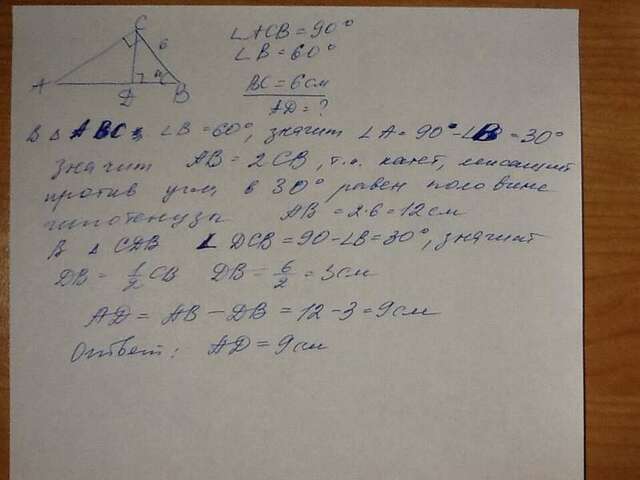 C
∠ACB = 90°
6
∠B = 60°
A
D
B
BC = 6см
AD = ?
В △ ABC ∠B = 60°, значит ∠A = 90° - ∠B = 30°
значит AB = 2CB, т.к. катет, лежащий
против угла в 30° равен половине
гипотенузы AB = 2·6 = 12см
В △ CDB ∠DCB = 90 - ∠B = 30°, значит
DB = 1/2 CB DB = 6/2 = 3см
AD = AB - DB = 12 - 3 = 9см
Ответ: AD = 9см